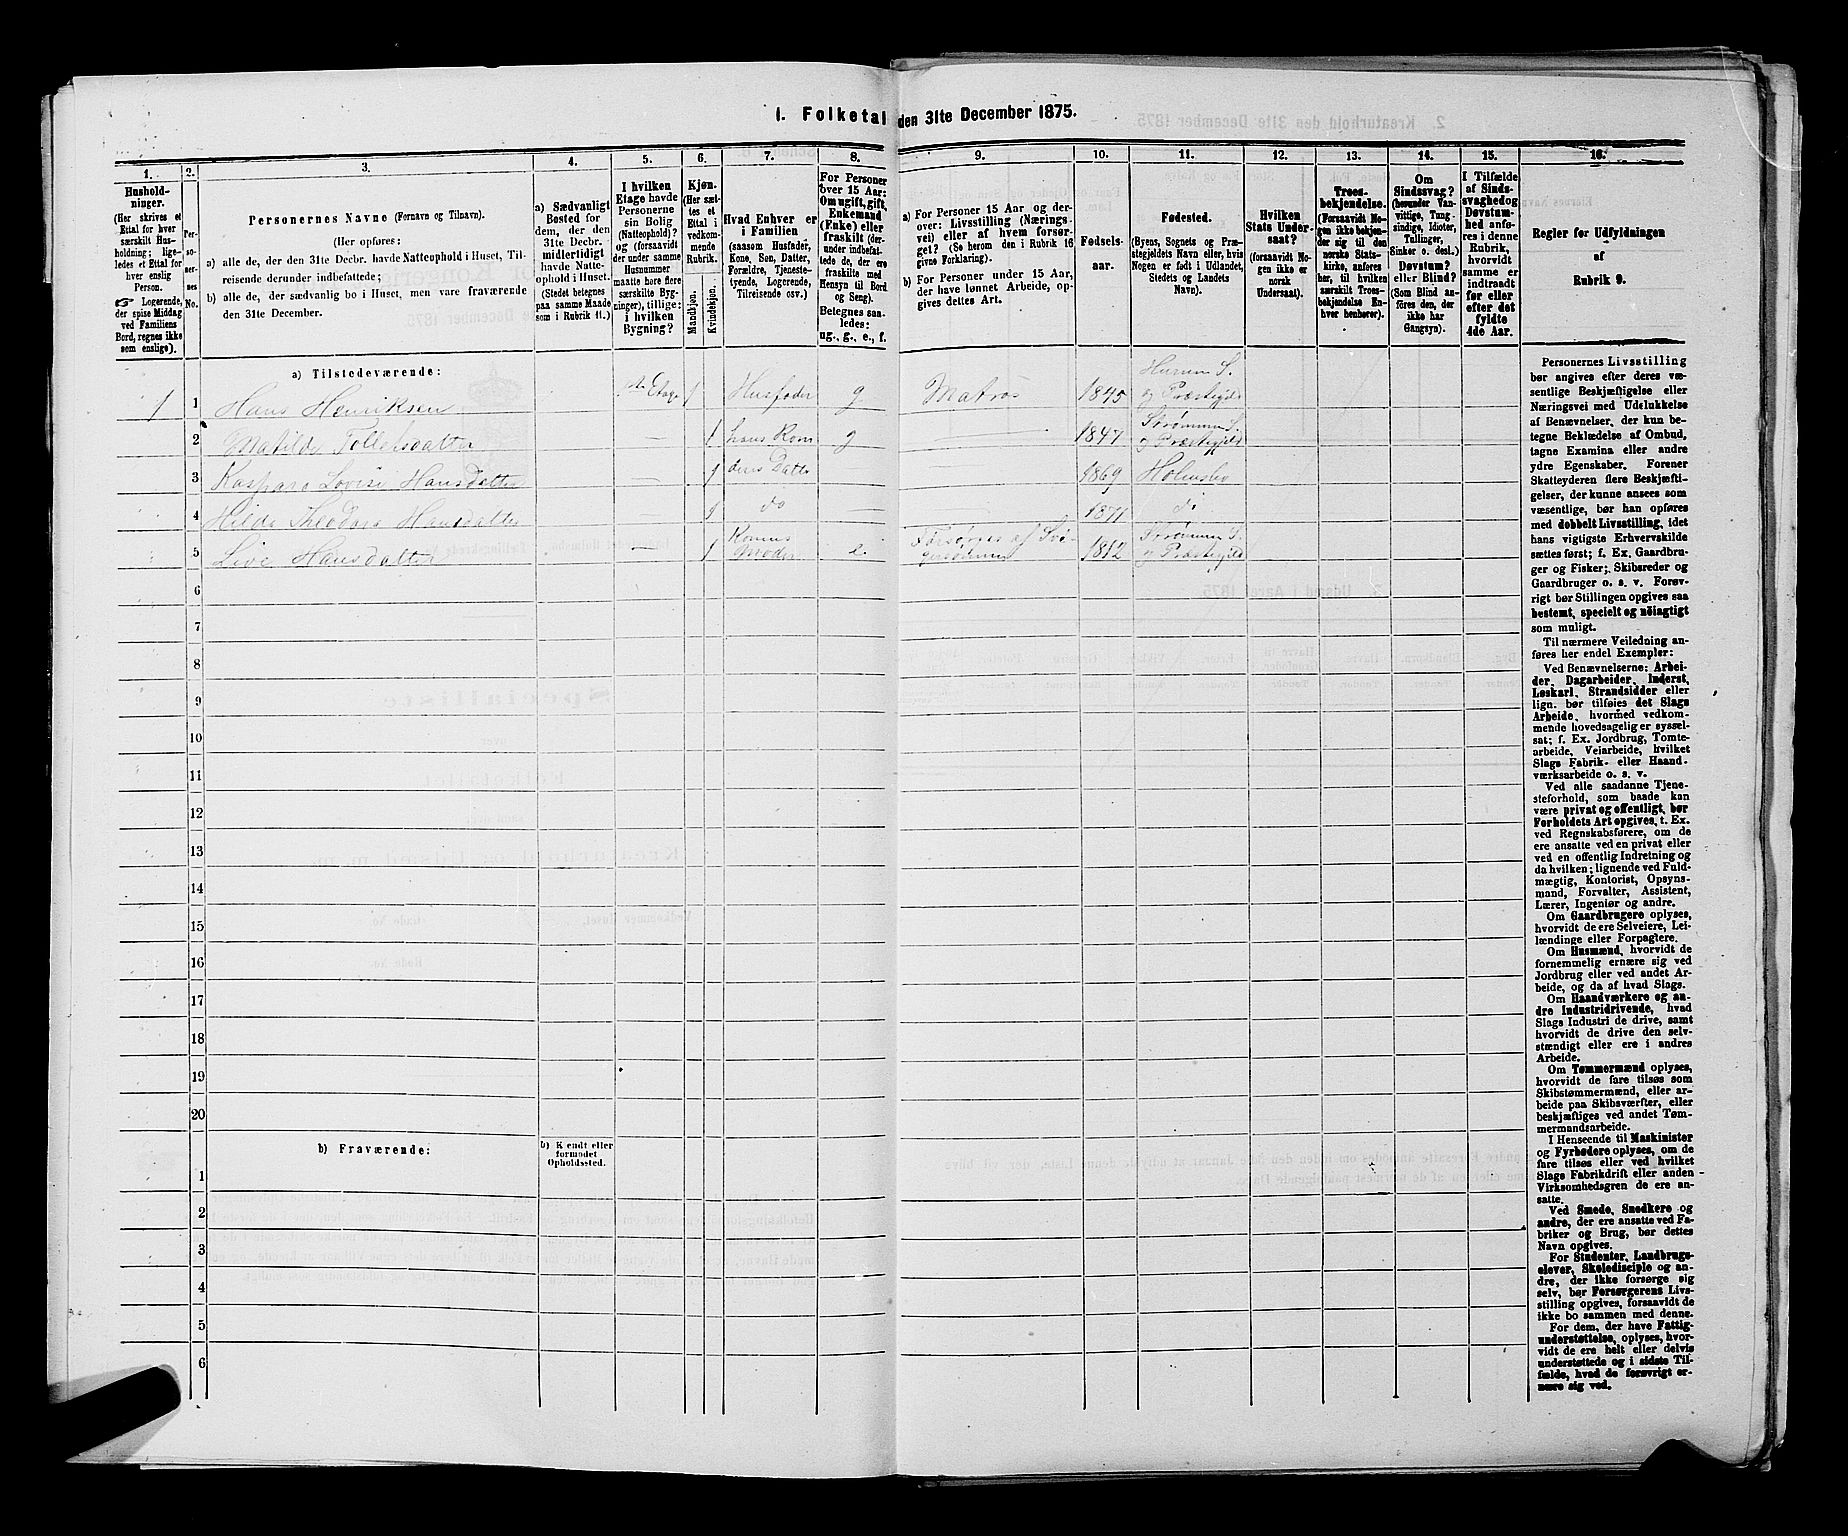 1. Folketal den 31te December 1875.
1.
Hushold-
ninger.
(Her skrives et
Ettal for hver
særskilt Hus-
holdning; lige-
ledes et Ettal for
hver enslig
Person.
☞ Logerende,
der spise Middag
ved Familiens
Bord, regnes ikke
som enslige).
2.
Per-
so-
ner-
nes
No.
3.
Personernes Navne (Fornavn og Tilnavn).
(Her opføres:
a) alle de, der den 31te Decbr. havde Natteophold i Huset, Til-
reisende derunder indbefattede;
b) alle de, der sædvanlig bo i Huset, men vare fraværende
den 31te December.
4.
a) Sædvanligt
Bosted for
dem, der den
31te Decbr.
midlertidigt
havde Natte-
ophold i Huset.
(Stedet betegnes
paa samme Maade
som i Rubrik 11.)
5.
I hvilken
Etage havde
Personerne
sin Bolig
(Natteophold)?
og (forsaavidt
der under samme
Husnummer
maatte høre flere
særskilte Byg-
ninger), tillige:
i hvilken
Bygning?
6.
Kjøn.
(Her sæt-
tes et
Ettal i
vedkom-
mende
Rubrik.
Mandkjøn.
Kvindekjøn.
7.
Hvad Enhver er
i Familien
(saasom Husfader,
Kone, Søn, Datter,
Forældre, Tjeneste-
tyende, Logerende,
Tilreisende osv.)
8.
For Personer
over 15 Aar:
Om ugift, gift,
Enkemand
(Enke) eller
fraskilt (der-
under indbefat-
tede de, der ere
fraskilte med
Hensyn til Bord
og Seng).
Betegnes saa-
ledes:
ug., g., e., f.
9.
a) For Personer 15 Aar og der-
over: Livsstilling (Nærings-
vei) eller af hvem forsør-
get? (Se herom den i Rubrik 16
givne Forklaring).
b) For Personer under 15 Aar,
der have lønnet Arbeide, op-
gives dettes Art.
10.
Fødsels-
aar.
11.
Fødested.
(Byens, Sognets og Præ-
stegjeldets Navn eller, hvis
Nogen er født i Udlandet,
Stedets og Landets
Navn).
12.
Hvilken
Stats Under-
saat?
(forsaavidt No-
gen ikke er
norsk
Undersaat).
13.
Troes-
bekjendelse.
(Forsaavidt No-
gen ikke bekjen-
der sig til den
norske Stats-
kirke, anføres
her, til hvilken
særskilt Troes-
bekjendelse En-
hver henhører).
14.
Om
Sindssvag?
(herunder Van-
vittige, Tung-
sindige, Idioter,
Tullinger,
Sinker o. desl.)
Døvstum?
eller Blind?
(Som Blind an-
føres den, der
ikke har
Gangsyn).
15.
I Tilfælde
af Sinds-
svaghed og
Døvstum-
hed anfø-
res i denne
Rubrik,
hvorvidt
samme er
indtraadt
før eller
efter det
fyldte
4de Aar.
16.
Regler for Udfyldningen
af
Rubrik 9.
a) Tilstedeværende:
1 1 Hans Henriksen 1ste Etage 1 Husfader g Matros 1845 Hurum S. og Præstegjeld
2 Matilde Tollefsdatter — 1 hans Kone g — 1847 Strømmen S. og Præstegjeld
3 Kaspara Lovise Hansdatter — 1 deres Datter — 1869 Holmsbo
4 Hilda Theodora Hansdatter — 1 do — 1871 do
5 Live Hansdatter — 1 Konens Moder e. Forsørges af Svigersønnen 1812 Strømmen S. og Præstegjeld
6
7
8
9
10
11
12
13
14
15
16
17
18
19
20
b) Fraværende:
b) Kjendt eller
formodet
Opholdssted.
1
2
3
4
5
6
Personernes Livsstilling
bør angives efter deres væ-
sentlige Beskjæftigelse eller
Næringsvei med Udelukkelse
af Benævnelser, der kun be-
tegne Beklædelse af Ombud,
tagne Examina eller andre
ydre Egenskaber. Forener
Skatteyderen flere Beskjæfti-
gelser, der kunne ansees som
væsentlige, bør han opføres
med dobbelt Livsstilling, idet
hans vigtigste Erhvervskilde
sættes først; f. Ex. Gaardbru-
ger og Fisker; Skibsreder og
Gaardbruger o. s. v. Forøv-
rigt bør Stillingen opgives saa
bestemt, specielt og nøiagtigt
som muligt.
Til nærmere Veiledning an-
føres her endel Exempler:
Ved Benævnelserne: Arbei-
der, Dagarbeider, Inderst,
Løskarl, Strandsidder eller
lign. bør tilføies det Slags
Arbeide, hvormed vedkom-
mende hovedsagelig er syssel-
sat; f. Ex. Jordbrug, Tomte-
arbeide, Veiarbeide, hvilket
Slags Fabrik- eller Haand-
værksarbeide o. s. v.
Ved alle saadanne Tjene-
steforhold, som baade kan
være privat og offentligt, bør
Forholdets Art opgives, t. Ex.
ved Regnskabsførere, om de
ere ansatte ved en privat eller
ved en offentlig Indretning og
da hvilken; lignende ved Fuld-
mægtig, Kontorist, Opsyns-
mand, Forvalter, Assistent,
Lærer, Ingeniør og andre.
Om Gaardbrugere oplyses,
hvorvidt de ere Selveiere, Lei-
lændinge eller Forpagtere.
Om Husmænd, hvorvidt de
fornemmelig ernære sig ved
Jordbrug eller ved andet Ar-
beide, og da af hvad Slags.
Om Haandværkere og an-
dre Industridrivende, hvad
Slags Industri de drive, samt
hvorvidt de drive den selv-
stændigt eller ere i andres
Arbeide.
Om Tømmermænd oplyses,
hvorvidt de fare tilsøs som
Skibstømmermænd, eller ar-
beide paa Skibsværfter, eller
beskjæftiges ved andet Tøm-
mermandsarbeide.
I Henseende til Maskinister
og Fyrbødere oplyses, om de
fare tilsøs eller ved hvilket
Slags Fabrikdrift eller anden
Virksomhedsgren de ere an-
satte.
Ved Smede, Snedkere og
andre, der ere ansatte ved Fa-
briker og Brug, bør dettes
Navn opgives.
For Studenter, Landbrugs-
elever, Skoledisciple og an-
dre, der ikke forsørge sig
selv, bør Forsørgerens Livs-
stilling opgives, forsaavidt de
ikke bo sammen med denne.
For dem, der have Fattig-
understøttelse, oplyses, hvor-
vidt de ere helt eller delvis
understøttede og i sidste Til-
fælde, hvad de forøvrigt er-
nære sig ved.